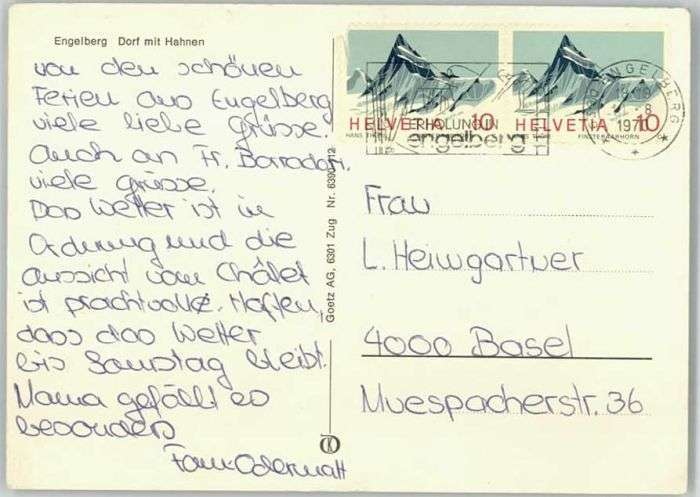 Engelberg Dorf mit Hahnen
von den schönen
Ferien aus Engelberg
viele liebe grüsse.
auch an Fr.
viele grüsse.
Das Wetter ist in
Ordnung und die
aussicht vom Châlet
ist prachtvoll. Hoffen,
dass das Wetter
bis Samstag bleibt.
Mama gefällt es
besonders
Fam. Odermatt
Goetz AG, 6301 Zug Nr.
HELVETIA 10
HELVETIA 10
FINSTERAARHORN
ERHOLUNG IN
engelberg
ENGELBERG
Frau
L. Heimgartner
4000 Basel
Muespacherstr. 36